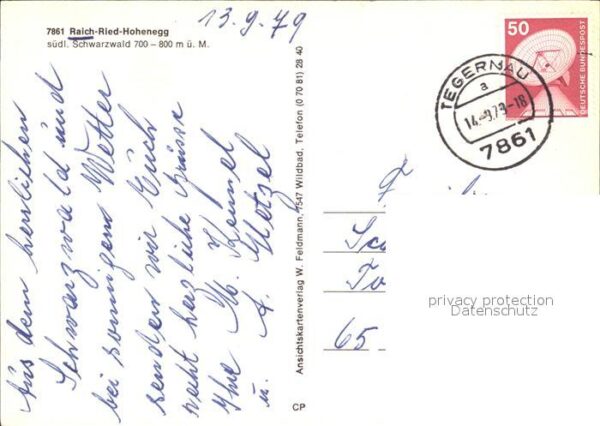 13.9.79
7861 Raich-Ried-Hohenegg
südl. Schwarzwald 700 – 800 m ü. M.
Aus dem herrlichen
Schwarzwald und
bei sonnigem Wetter
senden wir Euch
recht herzliche Grüsse
Ihre M. 
u. A. Hetzel
Ansichtskartenverlag W. Feldmann, 7547 Wildbad, Telefon (0 70 81) 28 40
CP
50
DEUTSCHE BUNDESPOST
TEGERNAU
a
14.-9.79-18
7861
F
Sc
To
65
privacy protection
Datenschutz